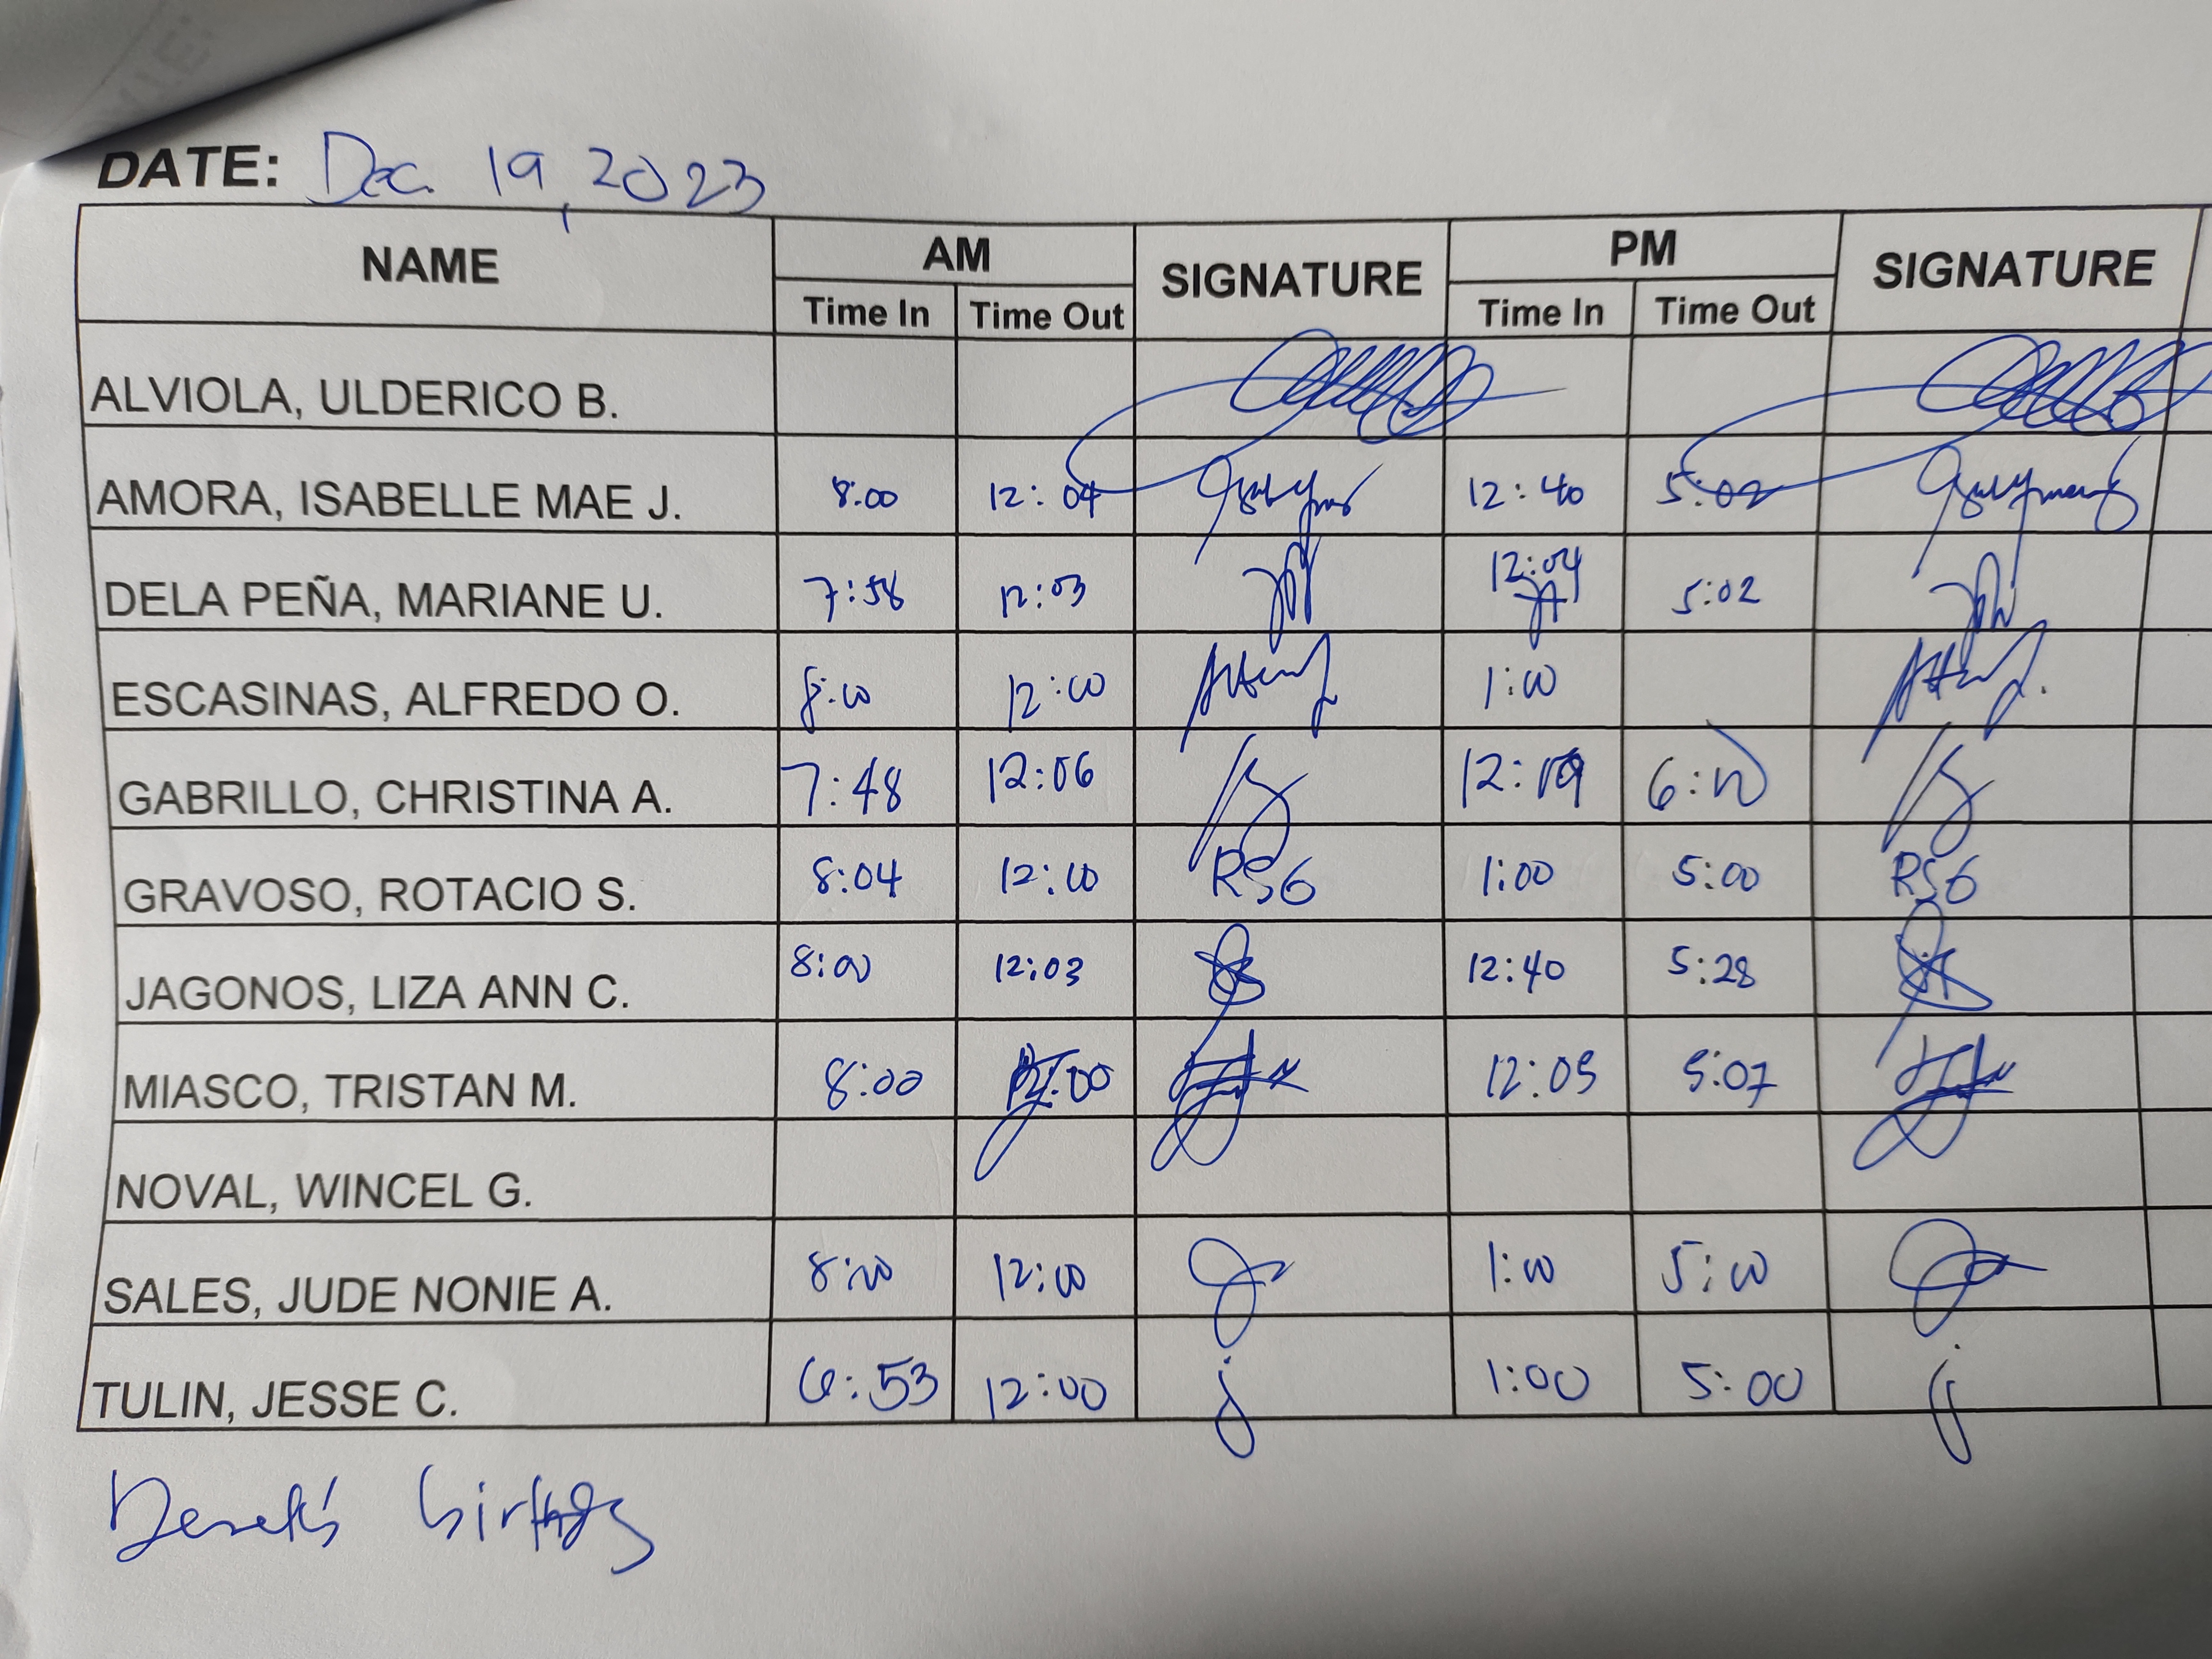 DATE: Dec. 19, 2023
NAME AM SIGNATURE PM SIGNATURE
Time In Time Out Time In Time Out
ALVIOLA, ULDERICO B.
AMORA, ISABELLE MAE J. 8:00 12:04 12:40 5:02
DELA PEÑA, MARIANE U. 7:58 12:03 12:04 5:02
ESCASINAS, ALFREDO O. 8:00 12:00 1:00
GABRILLO, CHRISTINA A. 7:48 12:06 12:09 6:00
GRAVOSO, ROTACIO S. 8:04 12:00 RSG 1:00 5:00 RSG
JAGONOS, LIZA ANN C. 8:00 12:03 12:40 5:28
MIASCO, TRISTAN M. 8:00 12:00 12:05 5:07
NOVAL, WINCEL G.
SALES, JUDE NONIE A. 8:00 12:00 1:00 5:00
TULIN, JESSE C. 6:53 12:00 j 1:00 5:00 j
birthday